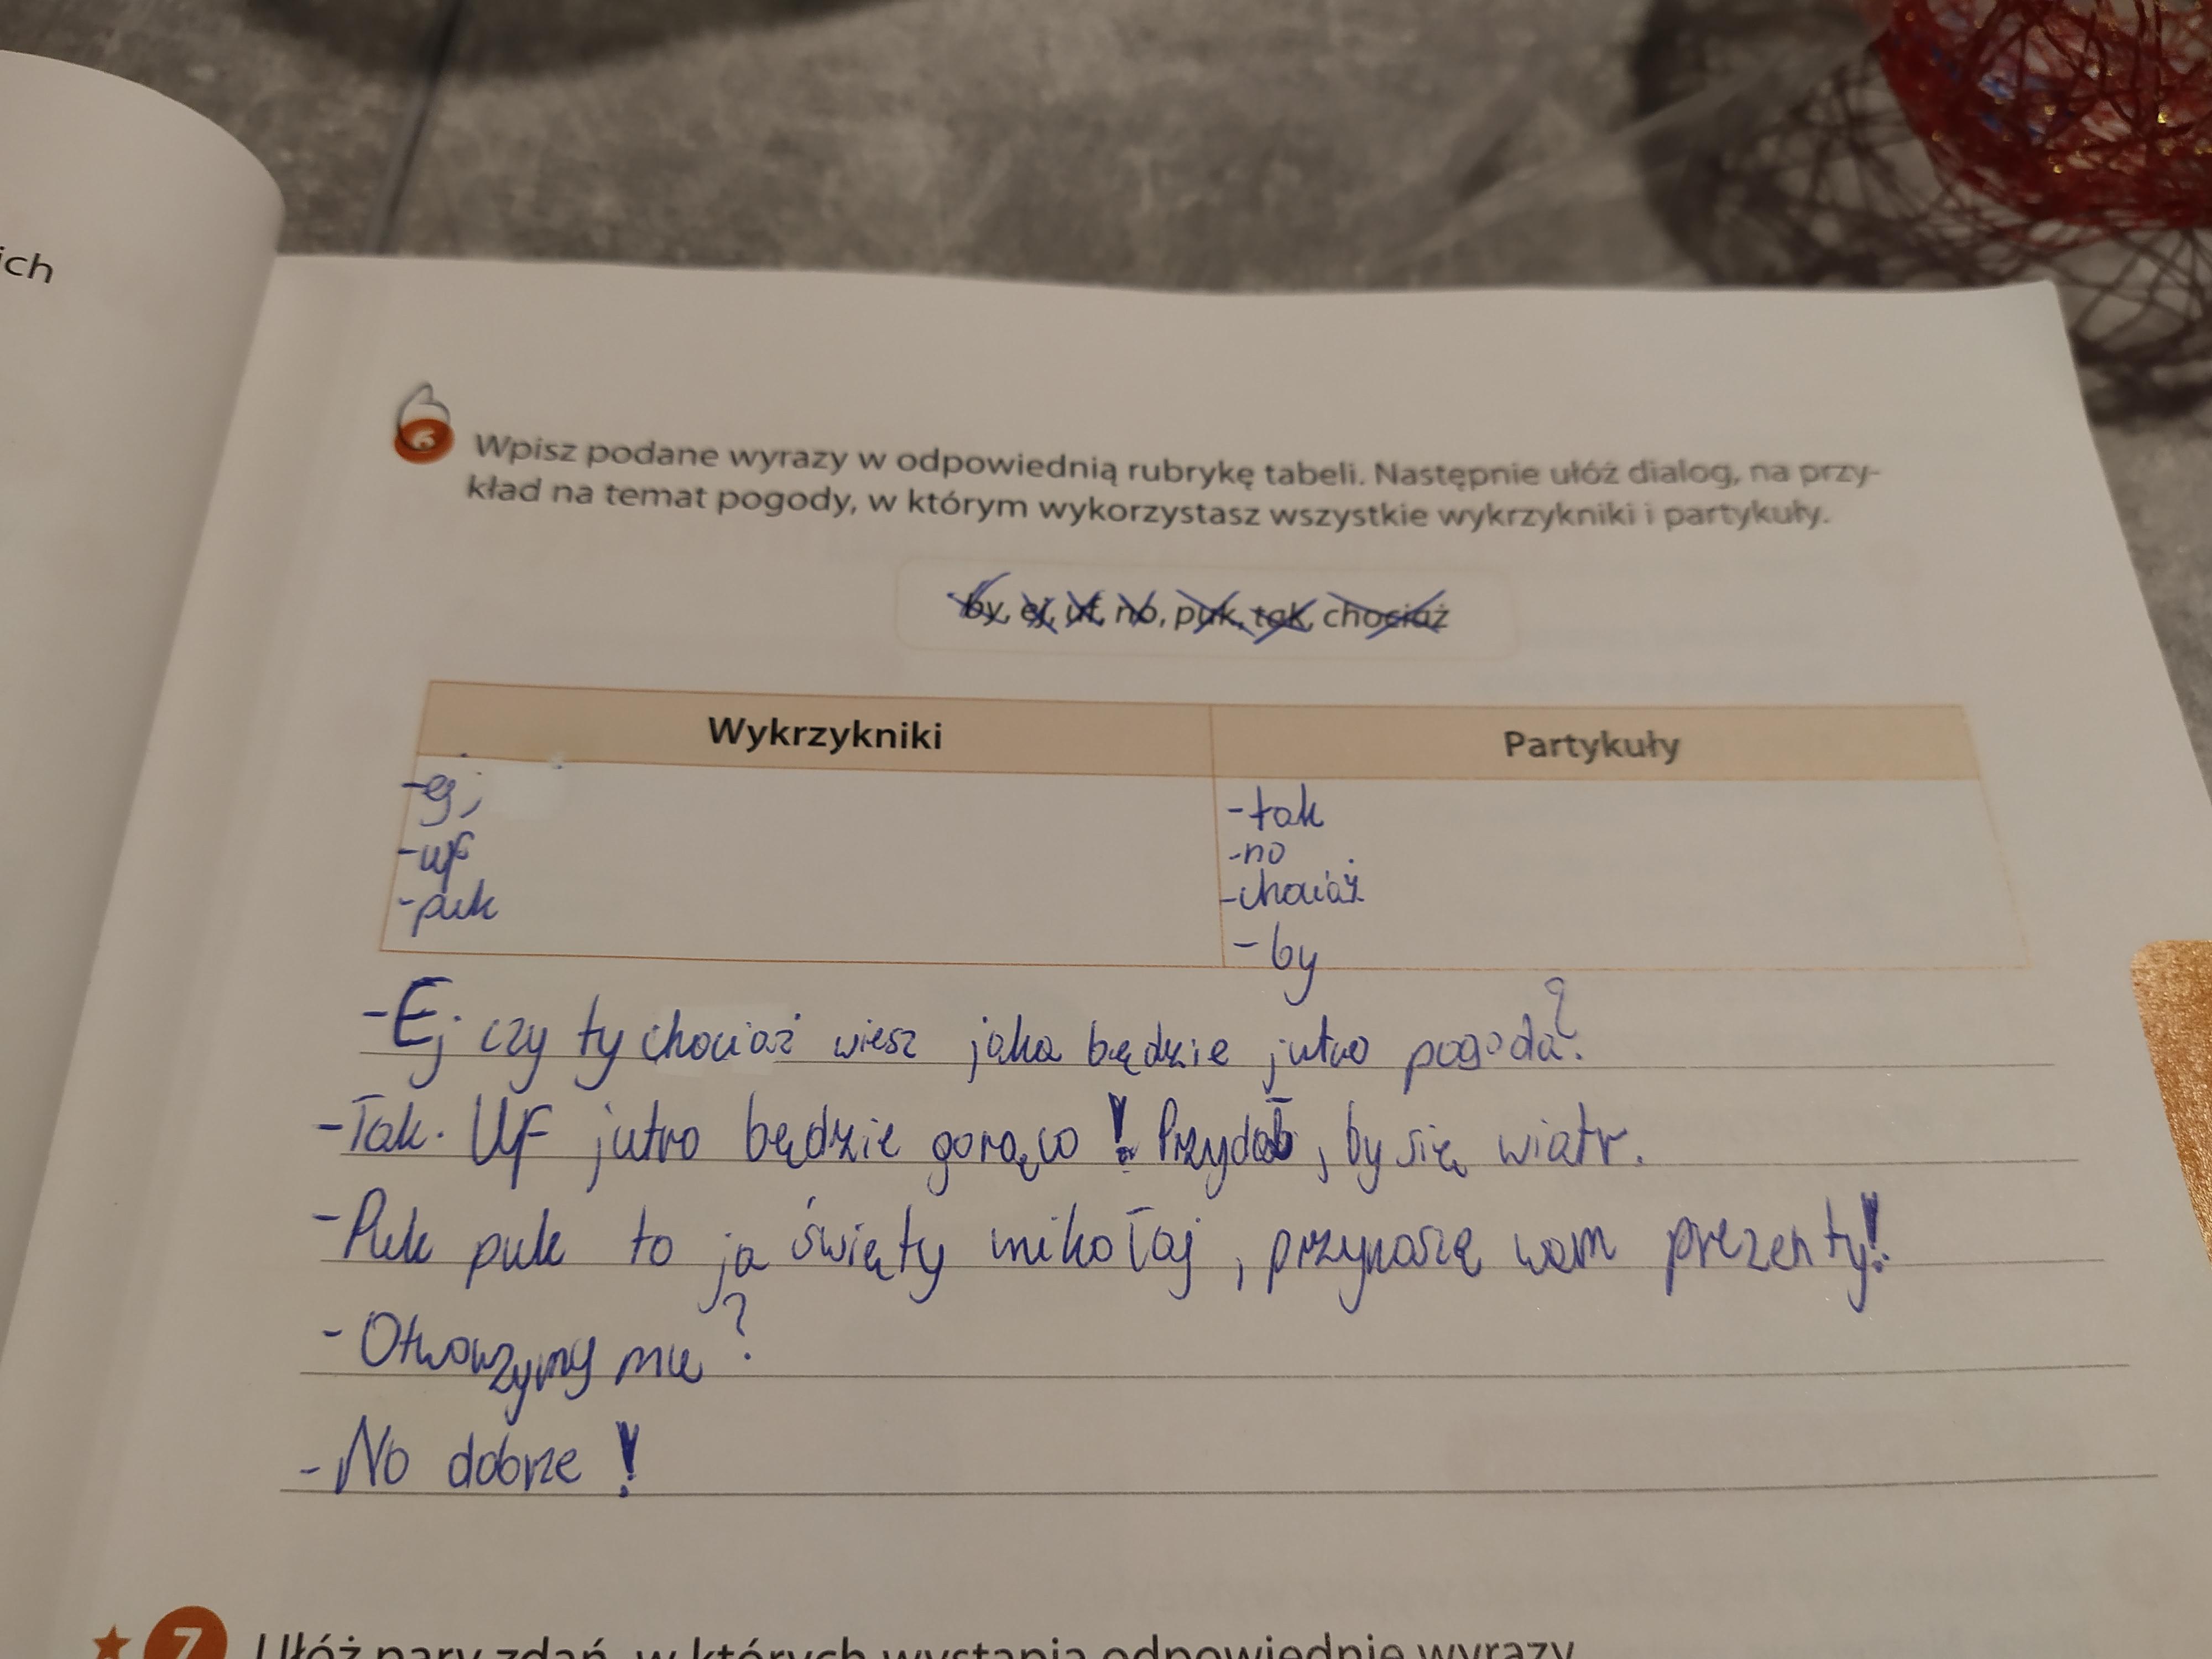 ich
6 Wpisz podane wyrazy w odpowiednią rubrykę tabeli. Następnie ułóż dialog, na przy-
kład na temat pogody, w którym wykorzystasz wszystkie wykrzykniki i partykuły.
by, ej, uf, no, puk, tak, chociaż
Wykrzykniki Partykuły
-ej, -tak
-uf -no
-puk -chociaż
-by
-Ej czy ty chociaż wiesz jaka będzie jutro pogoda?
-Tak. Uf jutro będzie gorąco! Przydał, by się wiatr.
-Puk puk to ja święty mikołaj, przynoszę wam prezenty!
-Otworzymy mu?
-No dobrze!
7 Ułóż pary zdań, w których wystąpią odpowiednie wyrazy